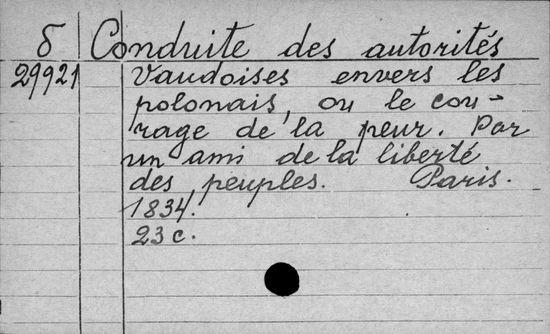 δ Conduite des autorités
29921 Vaudoises envers les
polonais, ou le cou-
rage de la peur. Par
un ami de la liberté
des peuples. Paris.
1834.
23 c.